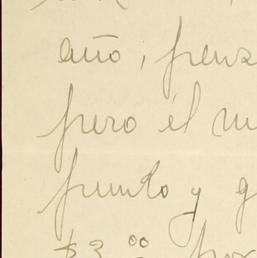 año, pens
pero él m
punto y g
$3.00 por